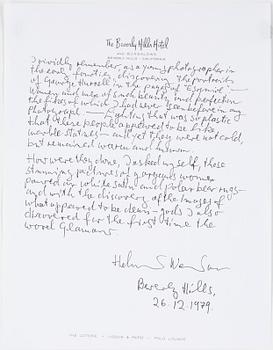 The Beverly Hills Hotel
AND BUNGALOWS
BEVERLY HILLS · CALIFORNIA
I vividly remember, as a young photographer in
the early forties, discovering the portraits
of George Hurrell in the pages of "Esquire" –
women and men of such beauty and perfection
the likes of which I had never seen before in any
photograph – Lighting that was so plastic
that these people appeared to be like
marble statues – and yet they were not cold,
but remained warm and human.
How were they done, I asked myself, these
stunning pictures of gorgeous women
poured in white satin and polar bear rugs –
and with the discovery of the images of
what appeared to be demi-gods I also
discovered for the first time the
word Glamour.
Helmut Newton
Beverly Hills,
26.12.1979.
POLO LOUNGE